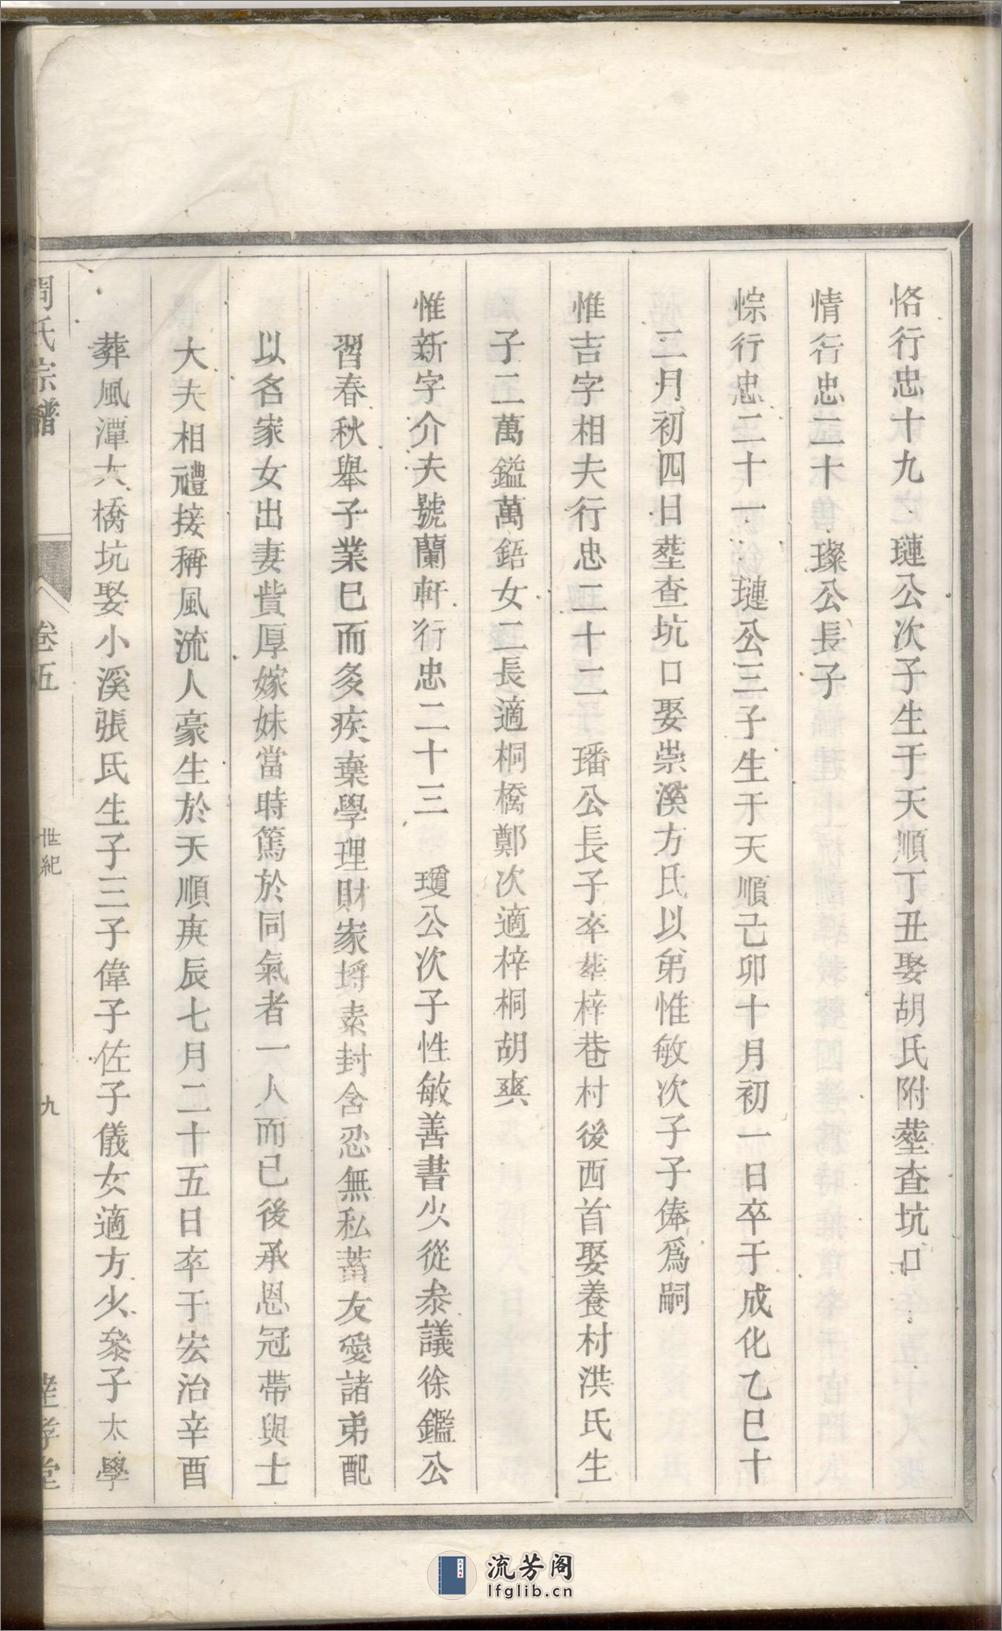 恪行忠十九 璉公次子生于天順丁丑娶胡氏附塟查坑口
情行忠二十 璨公長子
悰行忠二十一 璉公三子生于天順己卯十月初一日卒于成化乙巳十
二月初四日塟查坑口娶崇溪方氏以弟惟敏次子子俸爲嗣
惟吉字相夫行忠二十二 璠公長子卒塟梓巷村後西首娶養村洪氏生
子二萬鎰萬鋙女二長適桐橋鄭次適梓桐胡爽
惟新字介夫號蘭軒行忠二十三 瓊公次子性敏善書少從叅議徐鑑公
習春秋舉子業巳而多疾棄學理財家埒素封含忍無私蓄友愛諸弟配
以名家女出妻貲厚嫁妹當時篤於同氣者一人而已後承恩冠帶與士
大夫相禮接稱風流人豪生於天順庚辰七月二十五日卒于宏治辛酉
葬風潭大橋坑娶小溪張氏生子三子偉子佐子儀女適方少叅子太學
周氏宗譜 卷五 世紀 九 達孝堂
流芳阁
lfglib.cn